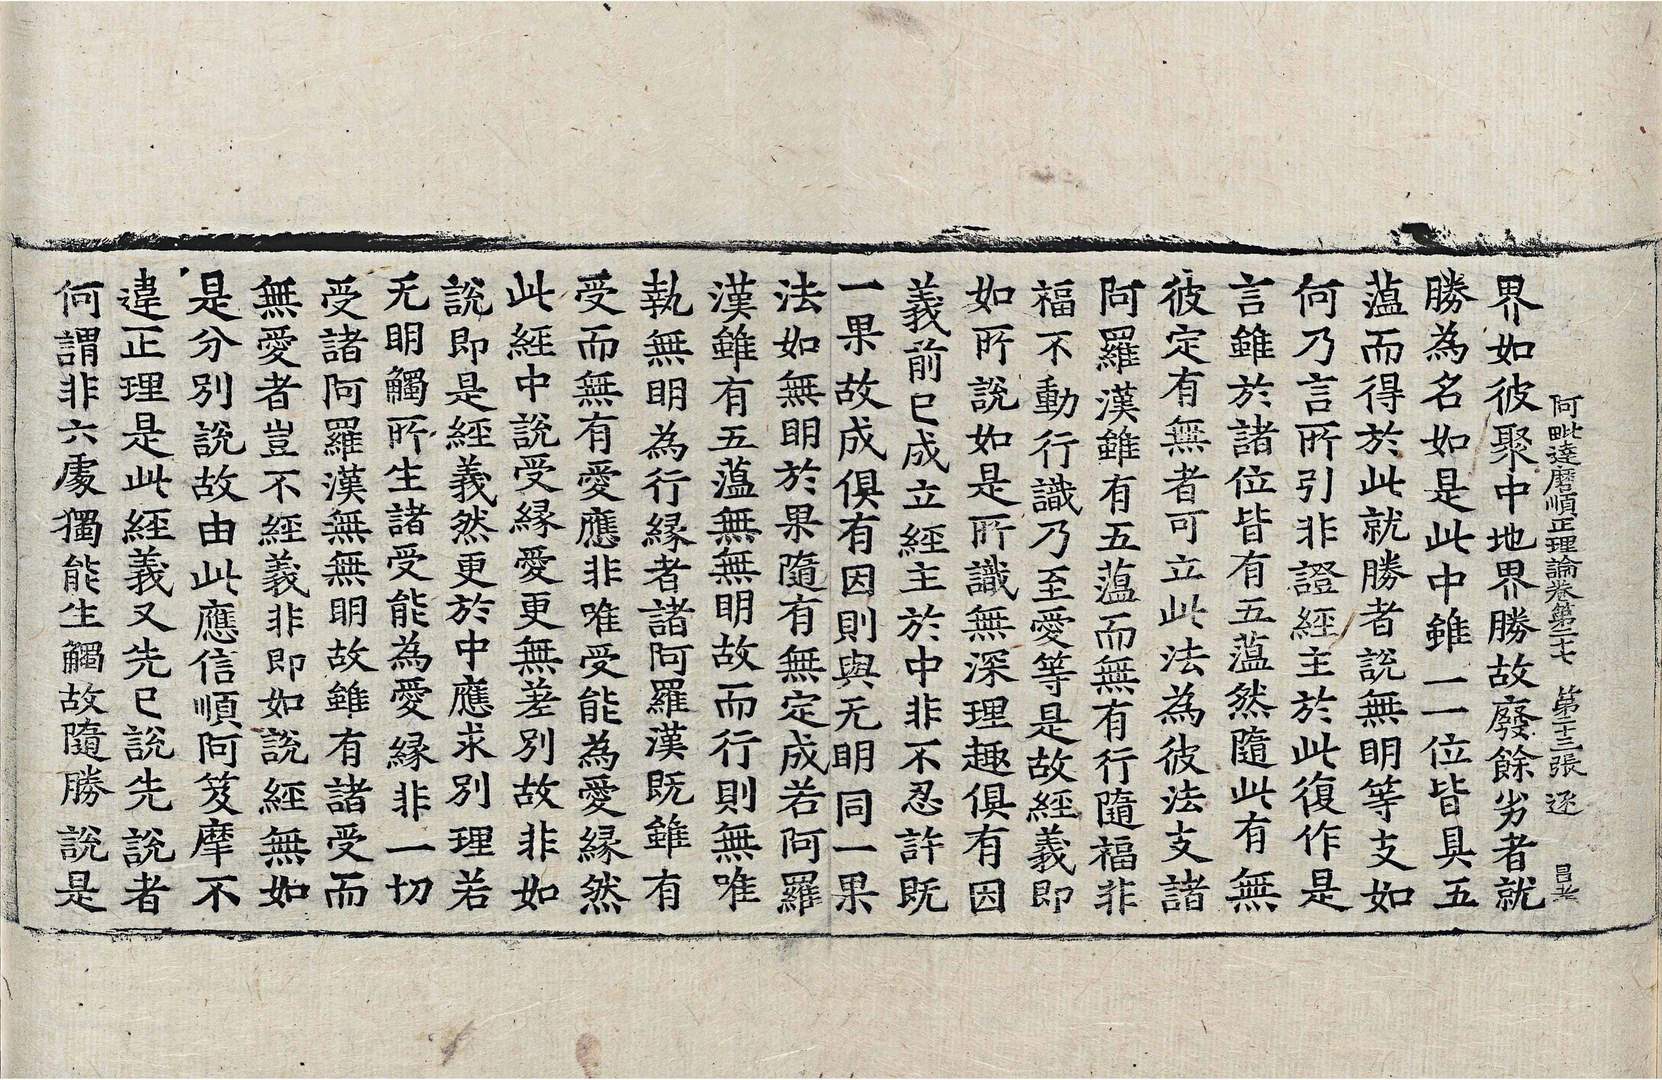 阿毗達磨順正理論卷第二十七 第二十三張 逐 昌老
界如彼聚中地界勝故廢餘劣者就
勝為名如是此中雖一一位皆具五
薀而得於此就勝者說無明等支如
何乃言所引非證經主於此復作是
言雖於諸位皆有五薀然隨此有無
彼定有無者可立此法為彼法支諸
阿羅漢雖有五薀而無有行隨福非
福不動行識乃至愛等是故經義即
如所說如是所識無深理趣俱有因
義前已成立經主於中非不忍許既
一果故成俱有因則與无明同一果
法如無明於果隨有無定成若阿羅
漢雖有五薀無無明故而行則無唯
執無明為行緣者諸阿羅漢既雖有
受而無有愛應非唯受能為愛緣然
此經中說受緣愛更無差別故非如
說即是經義然更於中應求別理若
无明觸所生諸受能為愛緣非一切
受諸阿羅漢無無明故雖有諸受而
無愛者豈不經義非即如說經無如
是分別說故由此應信順阿笈摩不
違正理是此經義又先已說先說者
何謂非六處獨能生觸故隨勝說是